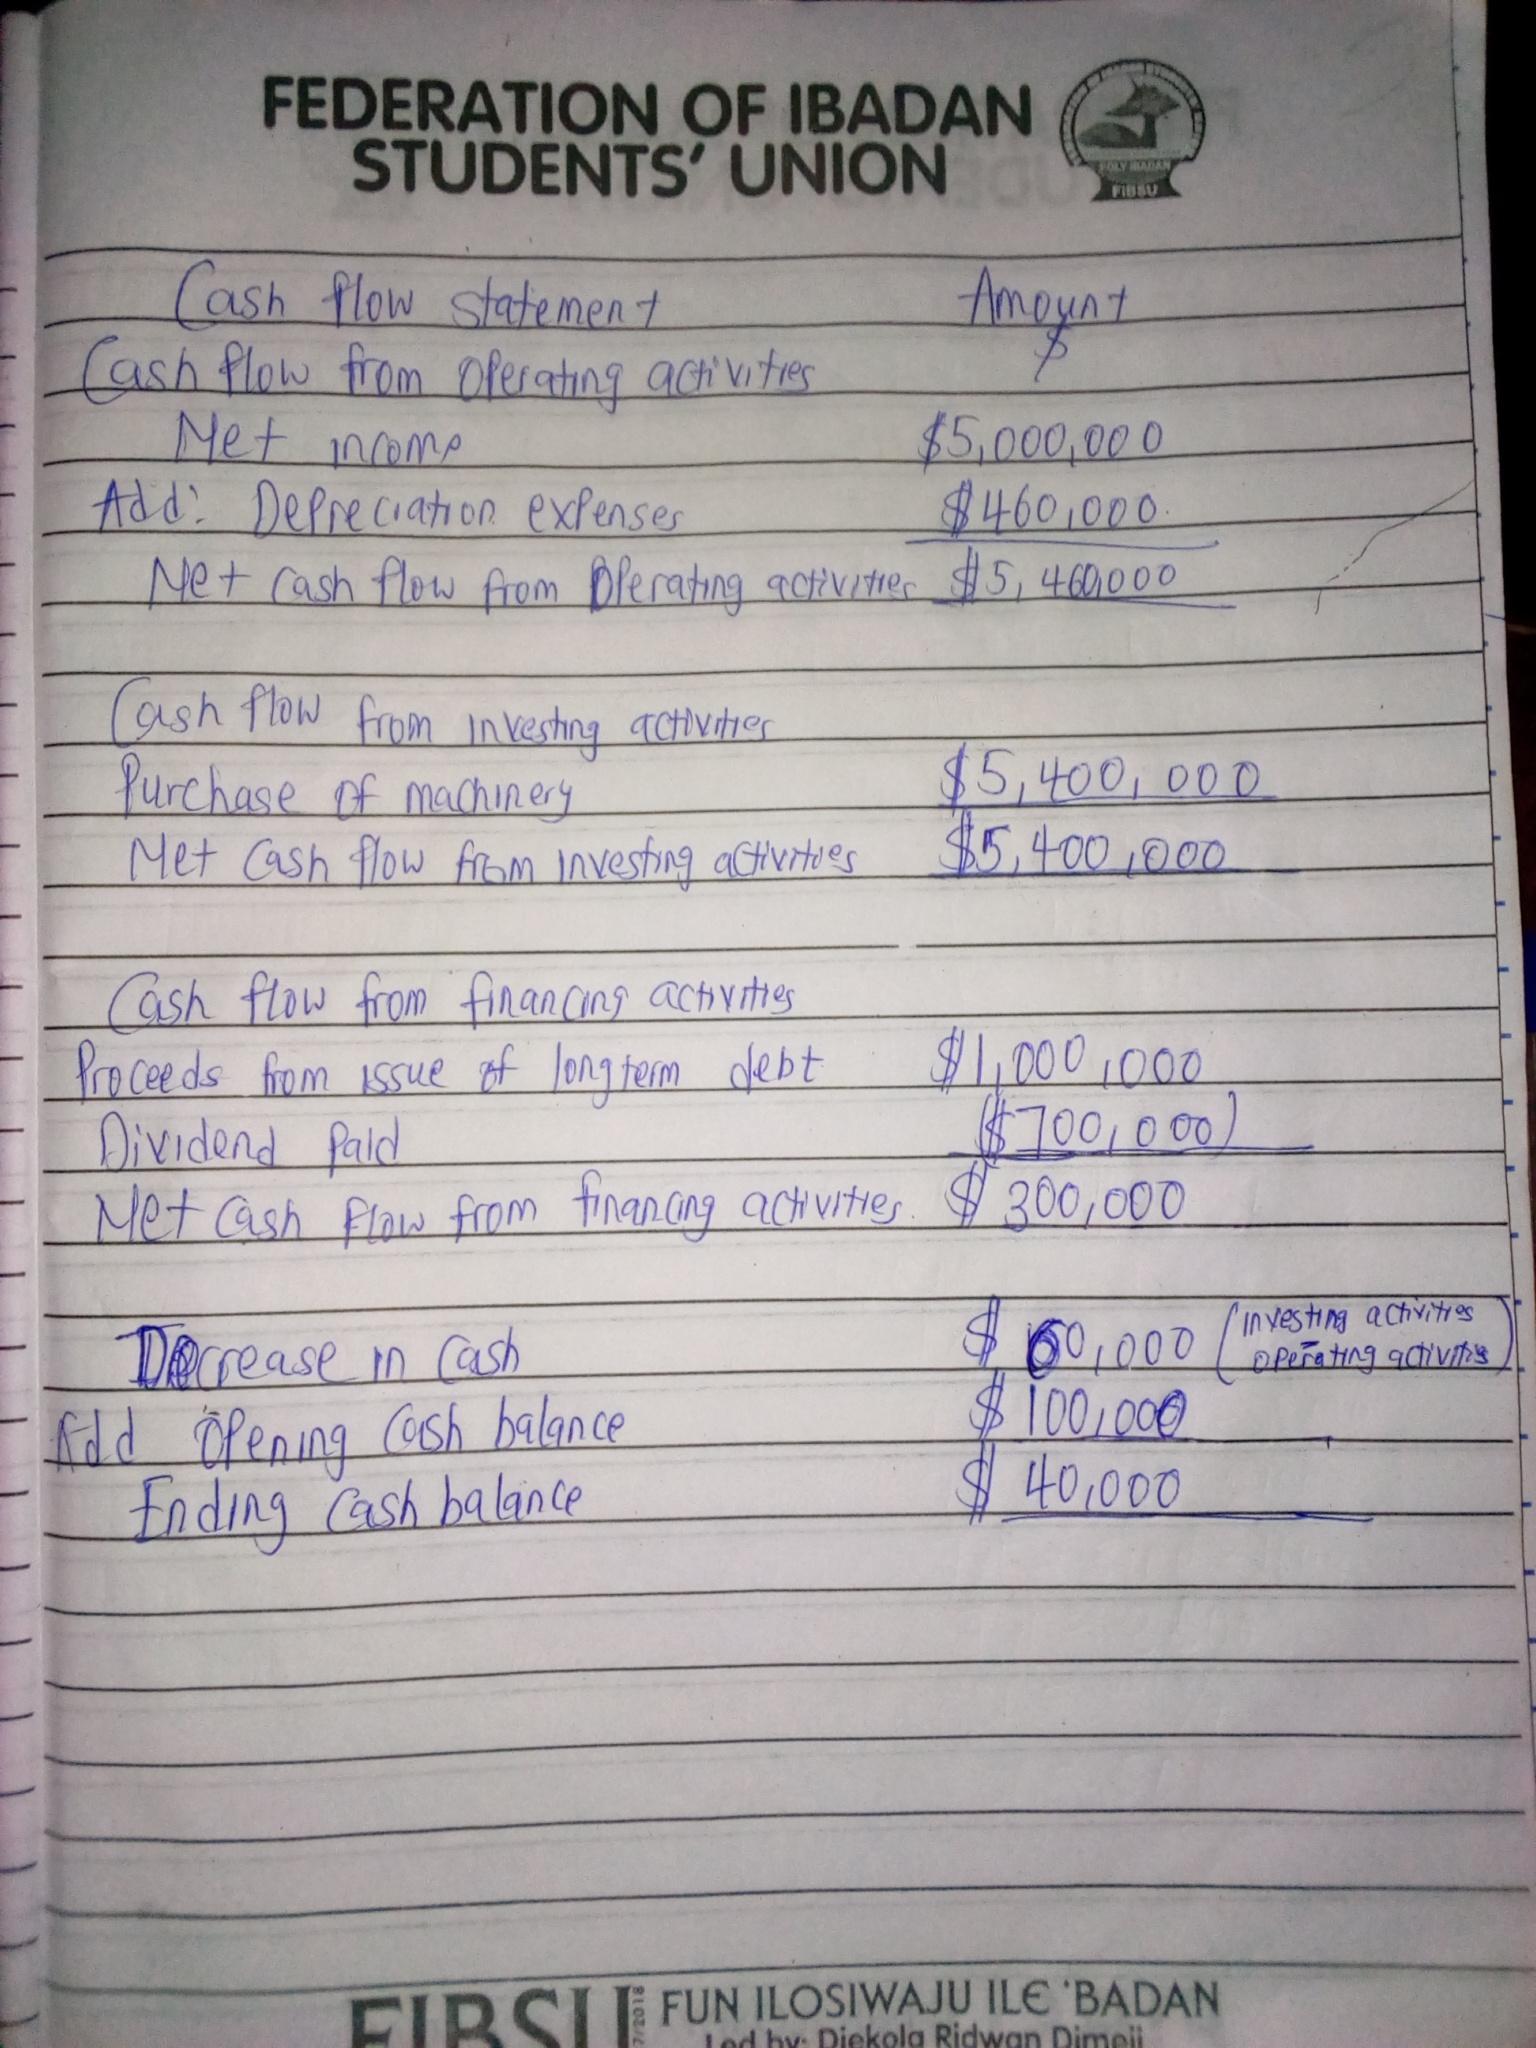 FEDERATION OF IBADAN
STUDENTS' UNION
POLY IBADAN
FIBSU
Cash flow statement Amount
$
Cash flow from Operating activities
Net income $5,000,000
Add: Depreciation expenses $460,000
Net cash flow from Operating activities $5,460,000
Cash flow from investing activities
Purchase of machinery $5,400,000
Net cash flow from investing activities $5,400,000
Cash flow from financing activities
Proceeds from issue of longterm debt $1,000,000
Dividend paid ($700,000)
Net cash flow from financing activities. $300,000
Decrease in cash $60,000 (investing activities - operating activities)
Add Opening cash balance $100,000
Ending cash balance $40,000
FIBSU 7/2018 FUN ILOSIWAJU ILE 'BADAN
Led by: Diekola Ridwan Dimeji